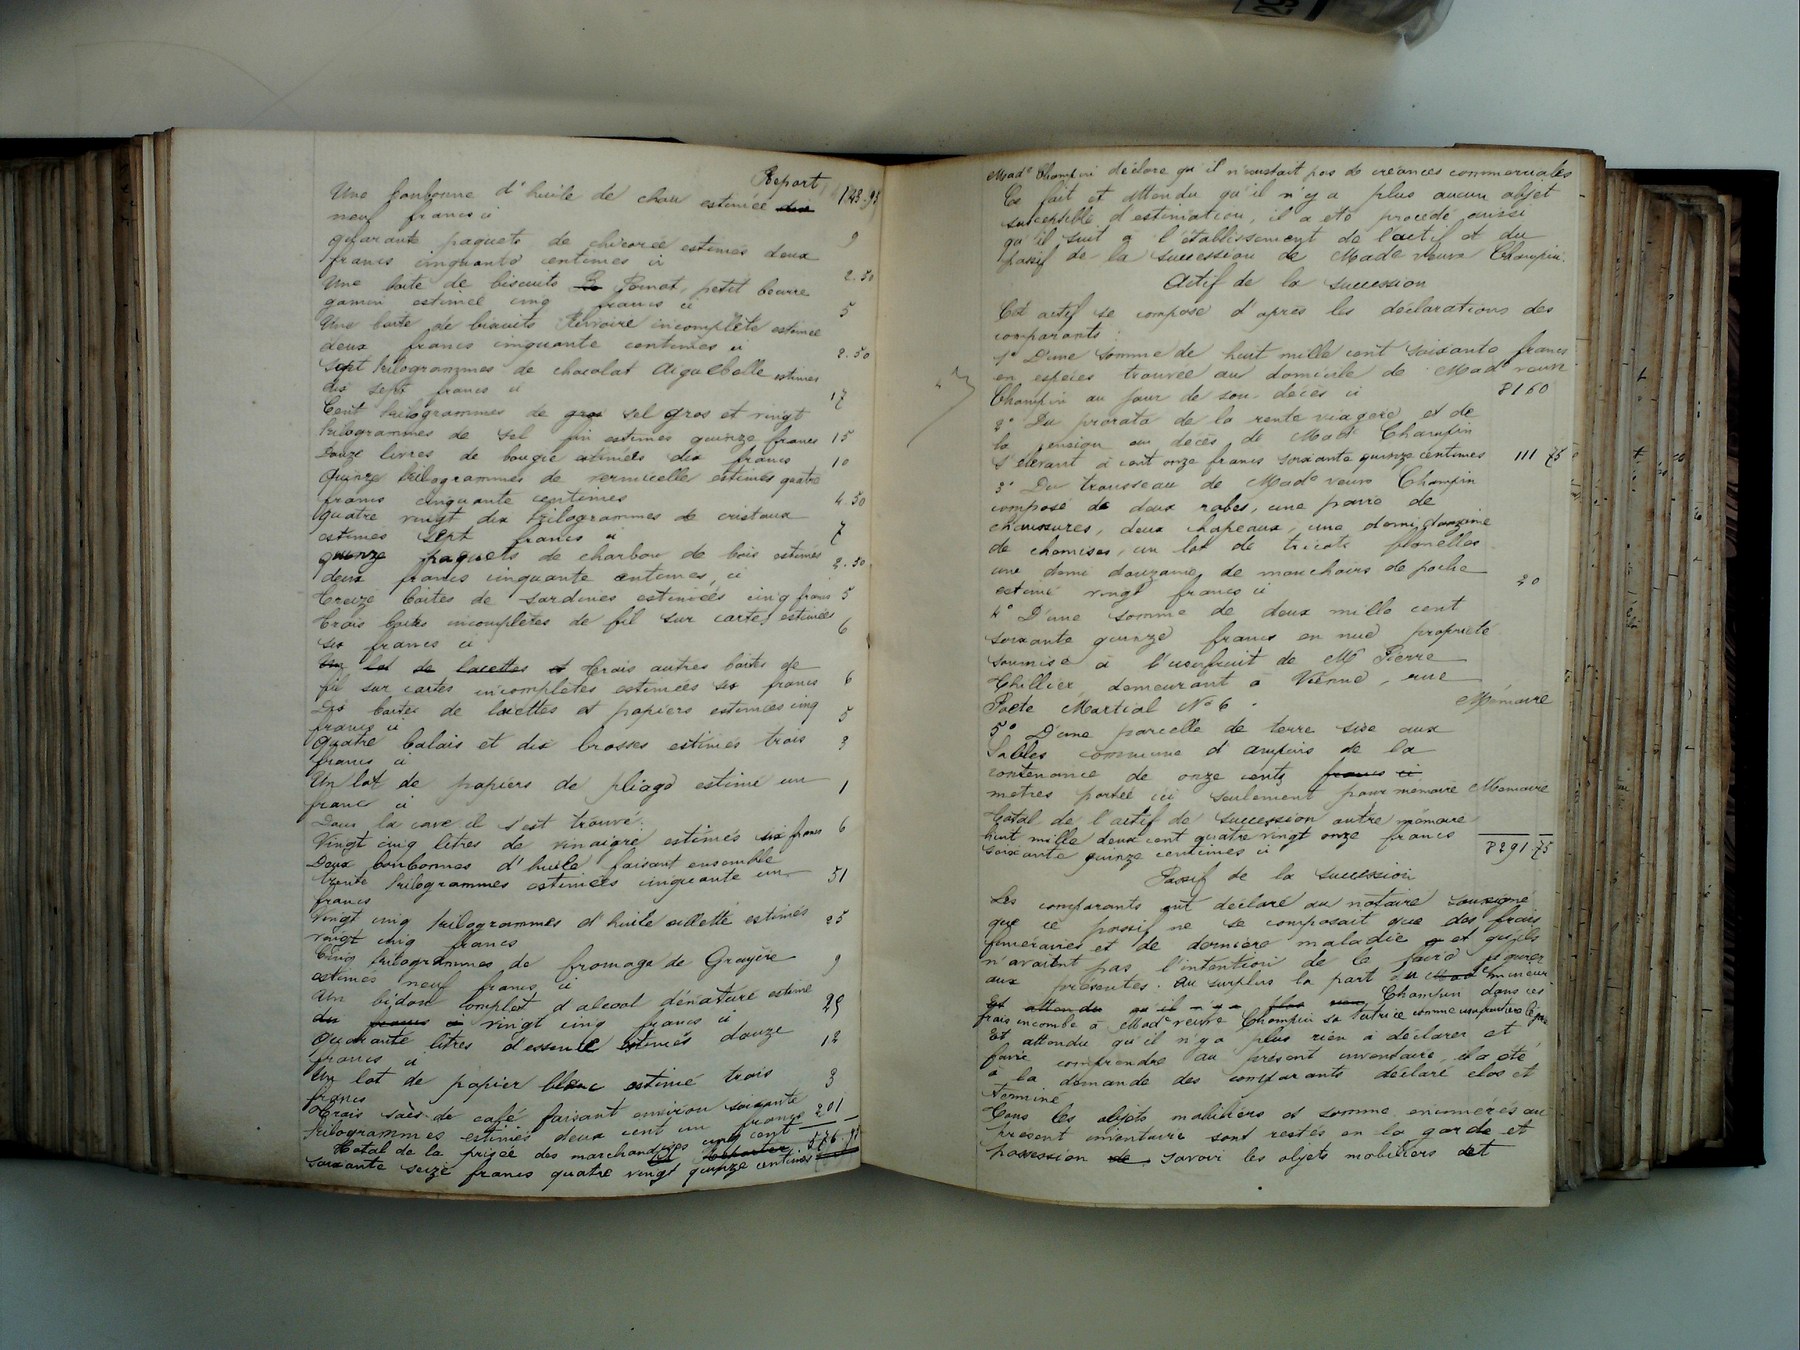 Report 148.95
Une bonbonne d'huile de chou estimée dix
neuf francs ci 9
quarante paquets de chicorée estimés deux
francs cinquante centimes ci 2.50
Une boite de biscuits Le Poinet, petit beurre
gamin estimée cinq francs ci 5
Une boite de biscuits incomplète estimée
deux francs cinquante centimes ci 2.50
Sept kilogrammes de chocolat Aiguebelle estimés
dix sept francs ci 17
Cent kilogrammes de gros sel gros et vingt
kilogrammes de sel fin estimés quinze francs 15
Douze livres de bougie estimées dix francs 10
Quinze kilogrammes de vermicelle estimés quatre
francs cinquante centimes 4 50
quatre vingt dix kilogrammes de cristaux
estimés sept francs ci 7
quinze paquets de charbon de bois estimés
deux francs cinquante centimes, ci 2.50
treize boites de sardines estimées cinq francs 5
trois boites incomplètes de fil sur carte, estimées
six francs ci 6
Un lot de lacettes et trois autres boites de
fil sur cartes incomplètes estimées six francs 6
Dix boites de lacettes et papiers estimées cinq
francs ci 5
quatre balais et dix brosses estimés trois
francs ci 3
Un lot de papiers de pliage estimé un
franc ci 1
Dans la cave il s'est trouvé:
Vingt cinq litres de vinaigre estimés six francs 6
Deux bonbonnes d'huile faisant ensemble
trente kilogrammes estimées cinquante un
francs 51
Vingt cinq kilogrammes d'huile oeillette estimés
vingt cinq francs 25
Cinq kilogrammes de fromage de Gruyère
estimés neuf francs ci 9
Un bidon complet d'alcool dénaturé estimé
dix francs ci vingt cinq francs ci 25
Quarante litres d'essence estimés douze
francs ci 12
Un lot de papier blanc estimé trois
francs 3
Trois sacs de café faisant environ soixante
kilogrammes estimés deux cent un francs 201
Total de la prisée des marchandises cinq cent 576.95
soixante seize francs quatre vingt quinze centimes
Made Champin déclare qu'il n'existait pas de créances commerciales
Ce fait et attendu qu'il n'y a plus aucun objet
susceptible d'estimation, il a été procédé ainsi
qu'il suit à l'établissement de l'actif et du
passif de la succession de Made veuve Champin.
Actif de la succession
Cet actif se compose d'après les déclarations des
comparants
1° D'une somme de huit mille cent soixante francs
en espèces trouvée au domicile de Made veuve
Champin au jour de son décès ci 8160
2° Du prorata de la rente viagère et de
la pension au décès de Made Champin
s'élevant à cent onze francs soixante quinze centimes 111 75
3° Du trousseau de Made veuve Champin
composé de deux robes, une paire de
chaussures, deux chapeaux, une demi douzaine
de chemises, un lot de tricots flanelles
une demi douzaine de mouchoirs de poche
estimé vingt francs ci 20
4° D'une somme de deux mille cent
soixante quinze francs en nue propriété
soumise à l'usufruit de Mr Pierre
Chilliex, demeurant à Vienne, rue
Poete Martial No 6. Mémoire
5° D'une parcelle de terre sise aux
Sables commune d'Ampuis de la
contenance de onze cents francs ci
mètres portée ici seulement pour mémoire Mémoire
Total de l'actif de succession outre mémoire
huit mille deux cent quatre vingt onze francs
soixante quinze centimes ci 8291 75
Passif de la succession
Les comparants ont déclaré au notaire soussigné
que ce passif ne se composait que des frais
funéraires et de dernière maladie et qu'ils
n'avaient pas l'intention de le faire figurer
aux présentes. Au surplus la part du Mad mineur
Et attendu qu'il n'y a plus rien Champin dans ces
frais incombe à Made veuve Champin sa tutrice comme usufruitière légale
Et attendu qu'il n'y a plus rien à déclarer et
faire comprendre au présent inventaire, il a été
à la demande des comparants déclaré clos et
terminé
Tous les objets mobiliers et somme énumérés au
présent inventaire sont restés en la garde et
possession de savoir les objets mobiliers et